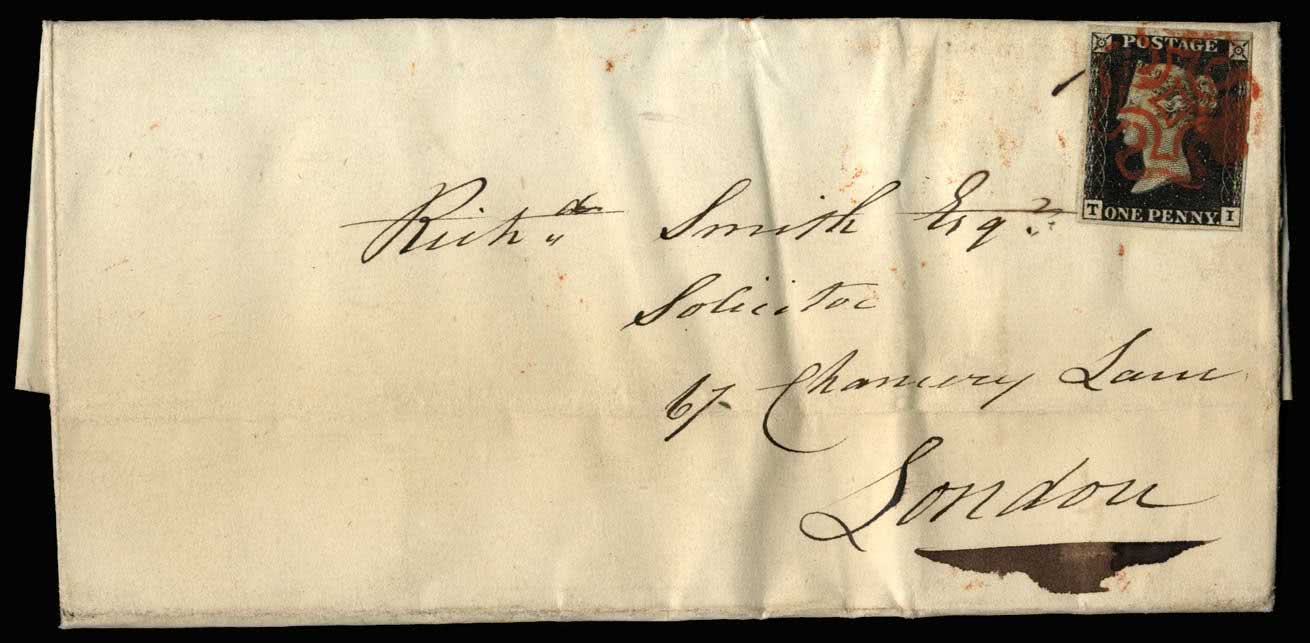 POSTAGE
T ONE PENNY. I
Richd Smith Esqr
Solicitor
67 Chancery Lane
London